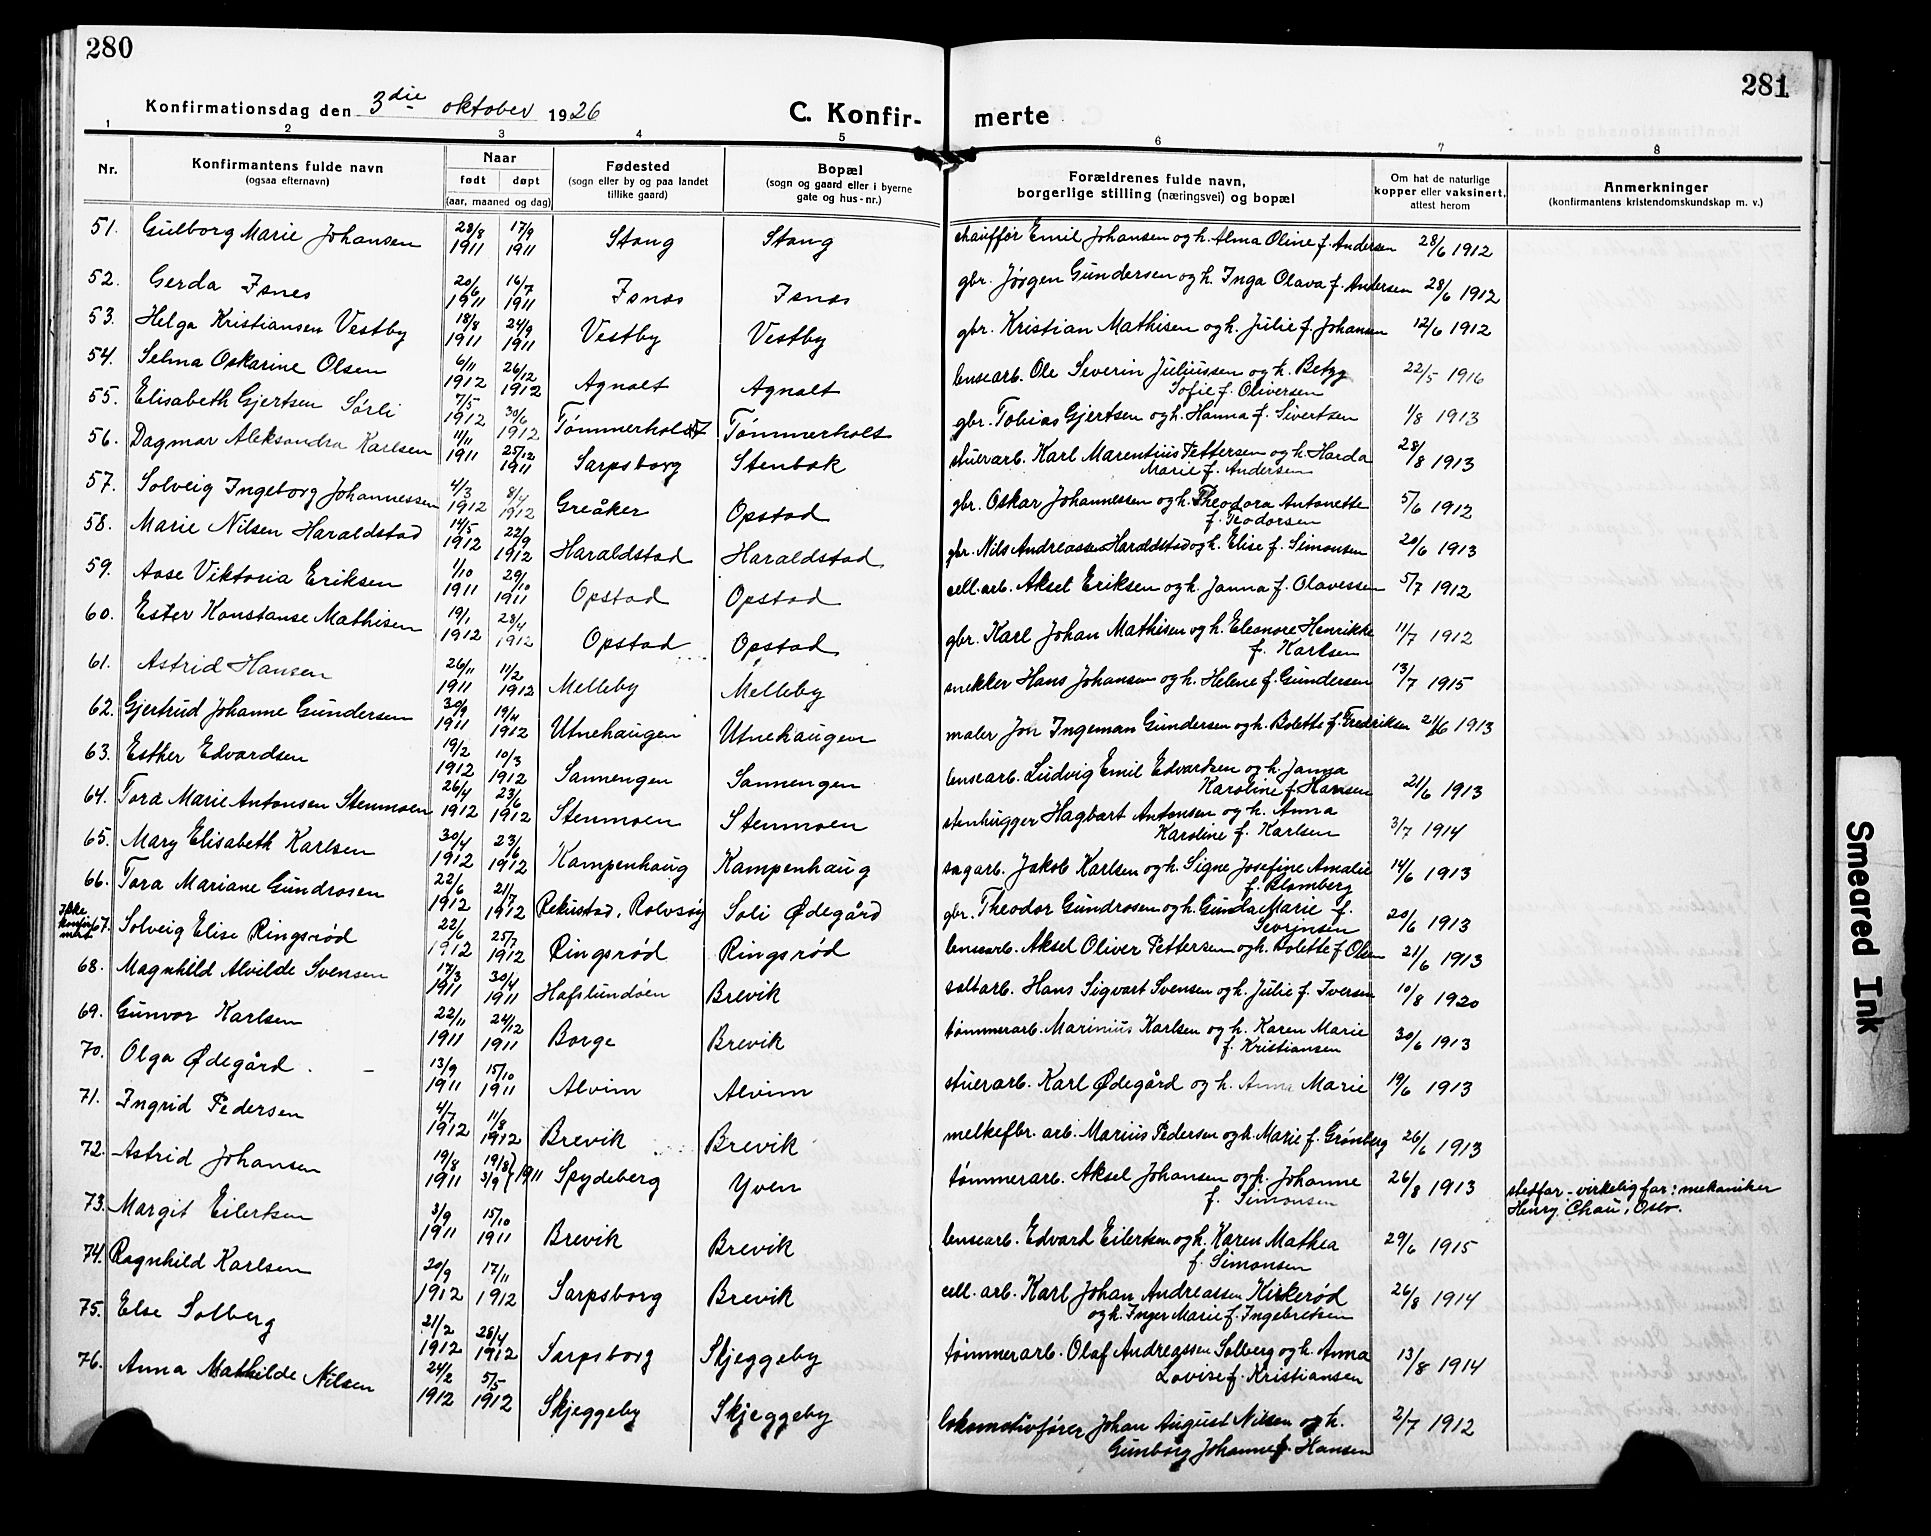 280
281
Konfirmationsdag den 3die oktober 1926
C. Konfir- merte
1 2 3 4 5 6 7 8
Nr. Konfirmantens fulde navn (ogsaa efternavn) Naar født døpt (aar, maaned og dag) Fødested (sogn eller by og paa landet tillike gaard) Bopæl (sogn og gaard eller i byerne gate og hus-nr.) Forældrenes fulde navn, borgerlige stilling (næringsvei) og bopæl Om hat de naturlige kopper eller vaksinert, attest herom Anmerkninger (konfirmantens kristendomskundskap m. v.)
51. Gulborg Marie Johansen 28/8 1911 17/9 1911 Stang Stang chauffør Emil Johansen og h. Alma Oline f. Andersen 28/6 1912
52. Gerda Isnes 20/6 1911 16/7 1911 Isnes Isnes gbr. Jørgen Gundersen og h. Inga Olava f. Andersen 28/6 1912
53. Helga Kristiansen Vestby 18/8 1911 24/9 1911 Vestby Vestby gbr. Kristian Mathisen og h. Julie f. Johansen 12/6 1912
54. Selma Oskarine Olsen 6/11 1912 26/12 1912 Agnalt Agnalt lensearb. Ole Severin Juliussen og h. Betzy
Sofie f. Oliversen 22/5 1916
55. Elisabeth Gjertsen Sørli 7/5 1912 30/6 1912 Tømmerholt Tømmerholt gbr. Tobias Gjertsen og h. Hanna f. Sivertsen 1/8 1913
56. Dagmar Aleksandra Karlsen 11/11 1911 25/12 1911 Sarpsborg Stenbæk stuerarb. Karl Marentius Pettersen og h. Harda
Marie f. Andersen 28/8 1913
57. Solveig Ingeborg Johannessen 4/3 1912 8/4 1912 Greåker Opstad gbr. Oskar Johannessen og h. Theodora Antonette
f. Teodorsen 5/6 1912
58. Marie Nilsen Haraldstad 14/5 1912 22/9 1912 Haraldstad Haraldstad gbr. Nils Andreassen Haraldstad og h. Elise f. Simonsen 20/6 1913
59. Aase Viktoria Eriksen 1/10 1911 29/10 1911 Opstad Opstad cell. arb. Aksel Eriksen og h. Janna f. Olavessen 5/7 1912
60. Ester Konstanse Mathisen 19/1 1912 28/4 1912 Opstad Opstad gbr. Karl Johan Mathisen og h. Eleonore Henrikke
f. Karlsen 11/7 1912
61. Astrid Hansen 26/11 1911 11/2 1912 Melleby Melleby snekker Hans Johansen og h. Helene f. Gundersen 13/7 1915
62. Gjertrud Johanne Gundersen 30/9 1911 19/4 1912 Utnehaugen Utnehaugen maler Jon Ingeman Gundersen og h. Bolette f. Fredriksen 21/6 1913
63. Esther Edvardsen 19/2 1912 10/3 1912 Sannengen Sannengen lensearb. Ludvig Emil Edvardsen og h. Janna
Karoline f. Hansen 21/6 1913
64. Tora Marie Antonsen Stenmoen 26/4 1912 23/6 1912 Stenmoen Stenmoen stenhugger Hagbart Antonsen og h. Anna
Karoline f. Karlsen 3/7 1914
65. Mary Elisabeth Karlsen 30/4 1912 23/6 1912 Kampenhaug Kampenhaug sagarb. Jakob Karlsen og h. Signe Josefine Amalie
f. Blomberg 14/6 1913
66. Tora Mariane Gundrosen 22/6 1912 21/7 1912 Rekustad, Rolvsøy Soli Ødegård gbr. Theodor Gundrosen og h. Gunda Marie f.
Sevrinsen 20/6 1913
Ikke konfirmert 67. Solveig Elise Ringsrød 22/6 1912 25/7 1912 Ringsrød Ringsrød lensearb. Aksel Oliver Pettersen og h. Bolette f. Olsen 21/6 1913
68. Magnhild Alvilde Svensen 17/3 1911 30/4 1911 Hafslundøen Brevik saltarb. Hans Sigvart Svensen og h. Julie f. Iversen 10/8 1920
69. Gunvor Karlsen 22/11 1911 24/12 1911 Borge Brevik tømmerarb. Marinius Karlsen og h. Karen Marie
f. Kristiansen 30/6 1913
70. Olga Ødegård. 13/9 1911 15/10 1911 Alvim Alvim stuerarb. Karl Ødegård og h. Anna Marie 19/6 1913
71. Ingrid Pedersen 4/7 1912 11/8 1912 Brevik Brevik melkefbr. arb. Marius Pedersen og h. Marie f. Grønberg 26/6 1913
72. Astrid Johansen 19/8 1911 19/8 3/9 } 1911 Spydeberg Yven tømmerarb. Aksel Johansen og h. Johanne
f. Simonsen 26/8 1913 stedfar - virkelig far: mekaniker
Henry Chau, Oslo.
73. Margit Eilertsen 3/9 1911 15/10 1911 Brevik Brevik lensearb. Edvard Eilertsen og h. Karen Mathea
f. Simonsen 29/6 1915
74. Ragnhild Karlsen 20/9 1912 17/11 1912 Sarpsborg Brevik cell. arb. Karl Johan Andreassen Kirkerød
og h. Inger Marie f. Ingebretsen 26/8 1914
75. Else Solberg 21/2 1912 28/4 1912 Sarpsborg Skjeggeby tømmerarb. Olaf Andreassen Solberg og h. Anna
Lovise f. Kristiansen 13/8 1914
76. Anna Mathilde Nilsen 24/2 1912 5/5 1912 Skjeggeby Skjeggeby lokomotivfører Johan August Nilsen og h.
Gunborg Johanne f. Hansen 2/7 1912
Smeared Ink